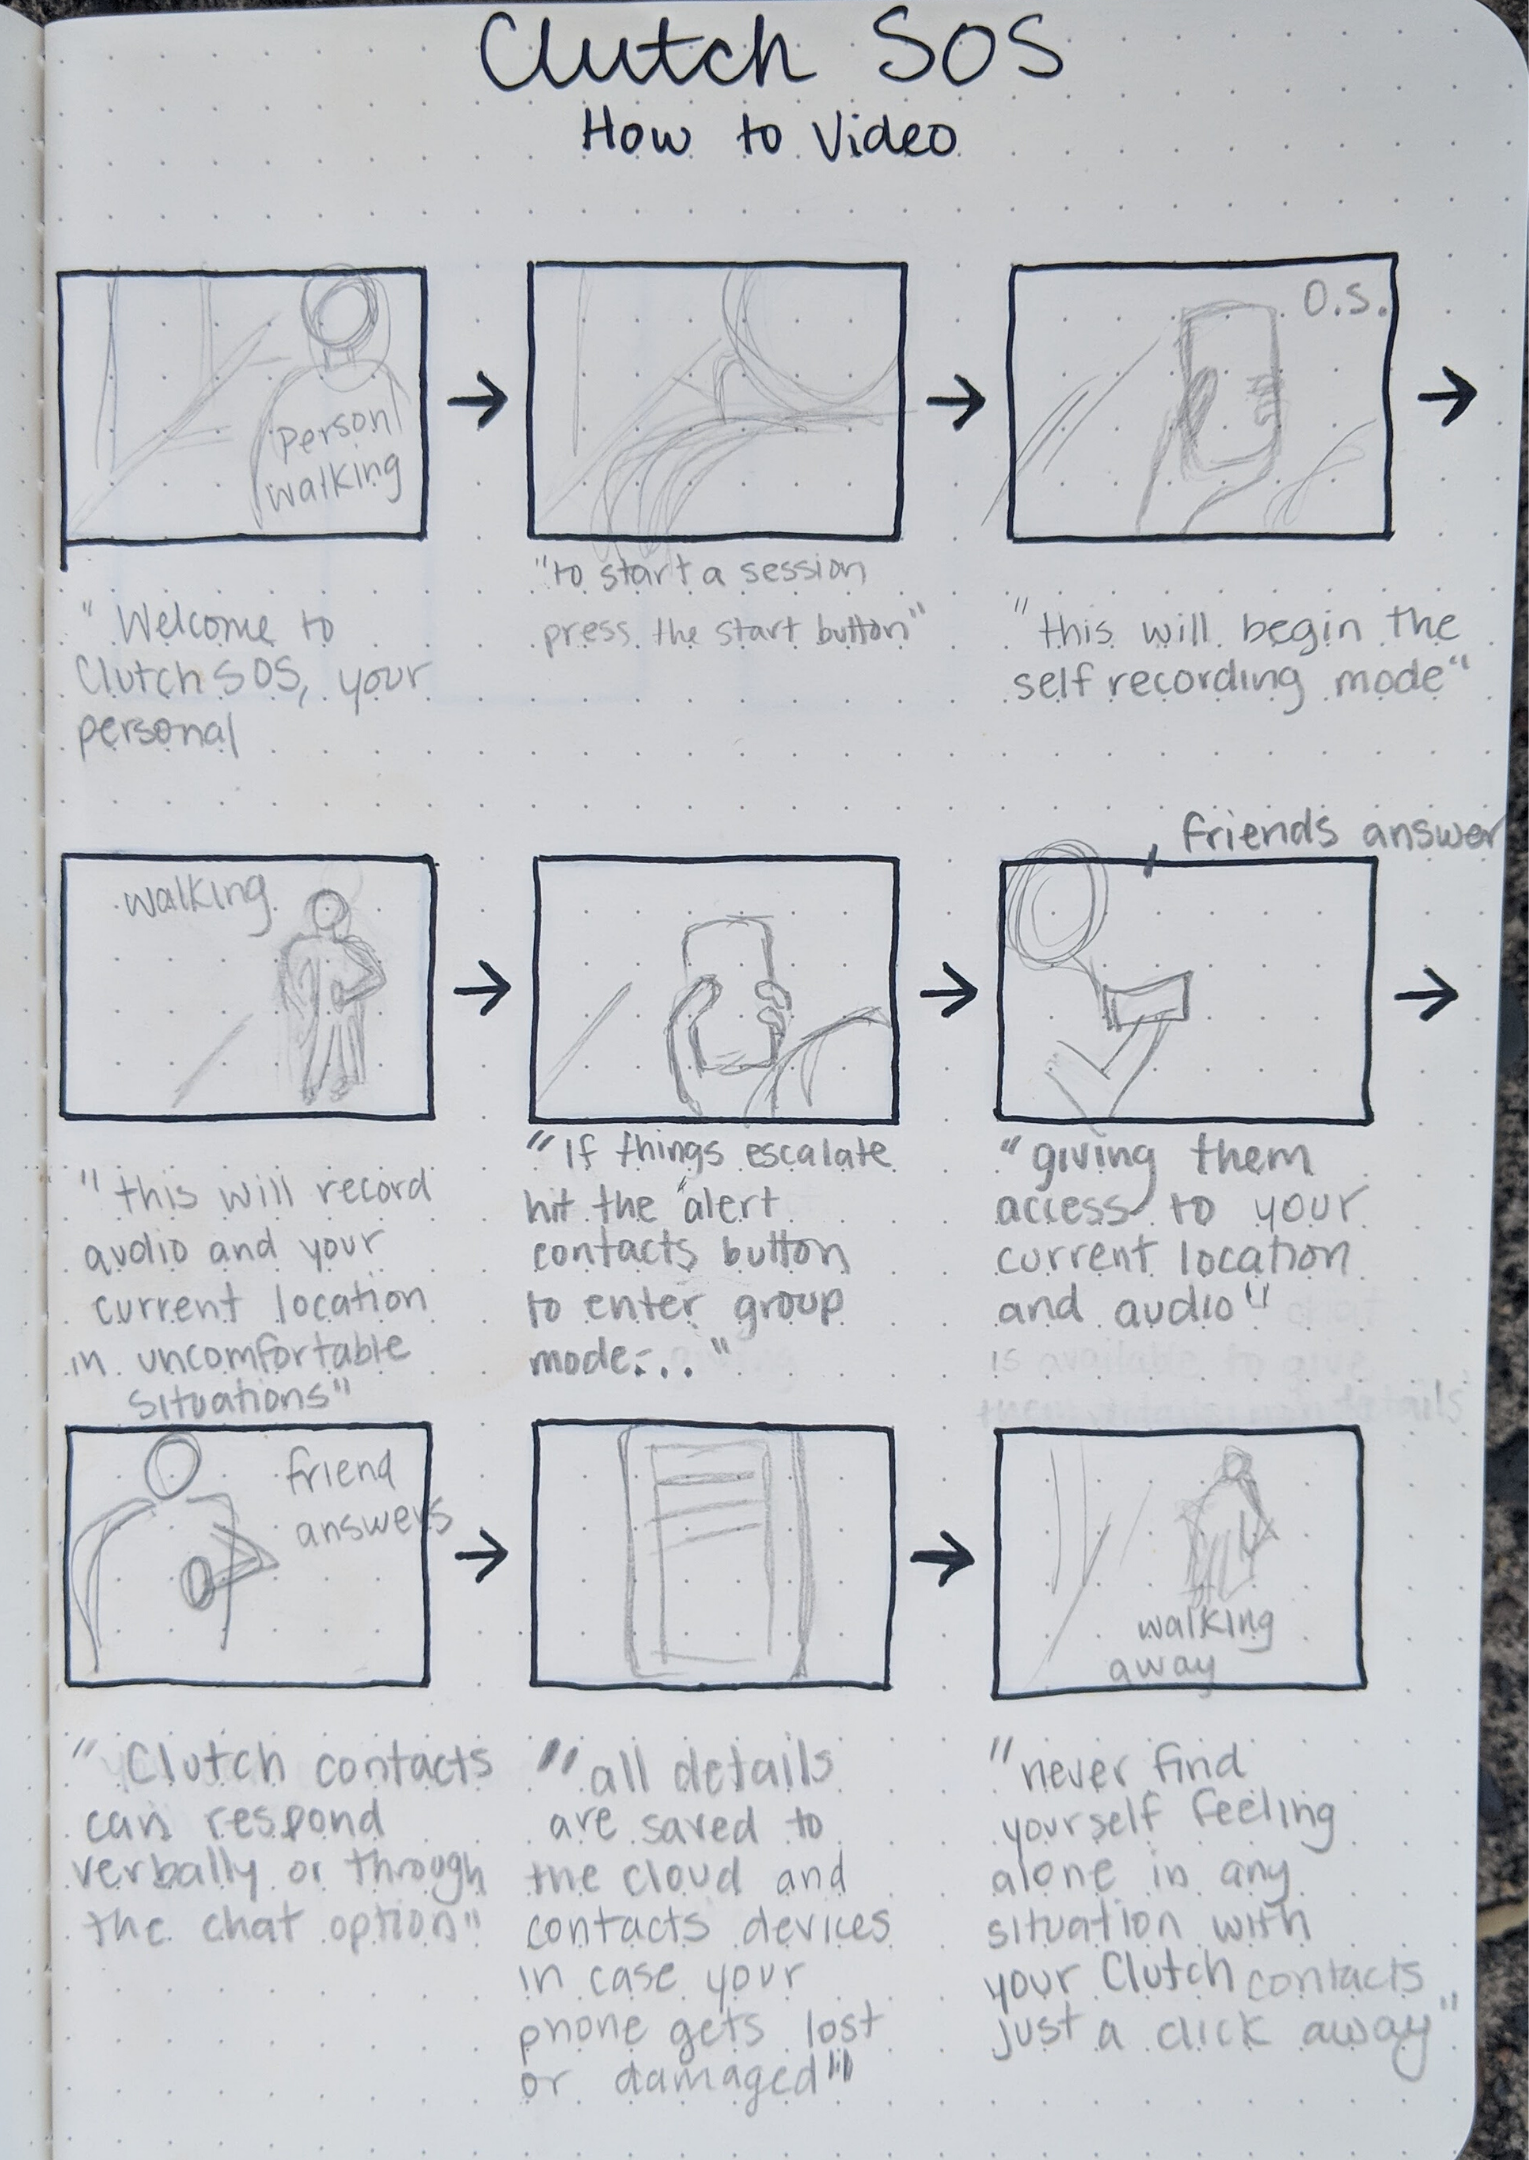 Clutch SOS
How to Video
O.S.
person
walking
"Welcome to
Clutch SOS, your
personal
"to start a session
press the start button"
"this will begin the
self recording mode"
friends answer
walking
"this will record
audio and your
current location
in uncomfortable
situations"
"If things escalate
hit the "alert
contacts button
to enter group
mode..."
"giving them
access to your
current location
and audio"
chat
is available to give
details
friend
answers
walking
away
"Clutch contacts
can respond
verbally or through
the chat option"
"all details
are saved to
the cloud and
contacts devices
in case your
phone gets lost
or damaged"
"never find
yourself feeling
alone in any
situation with
your Clutch contacts
just a click away"